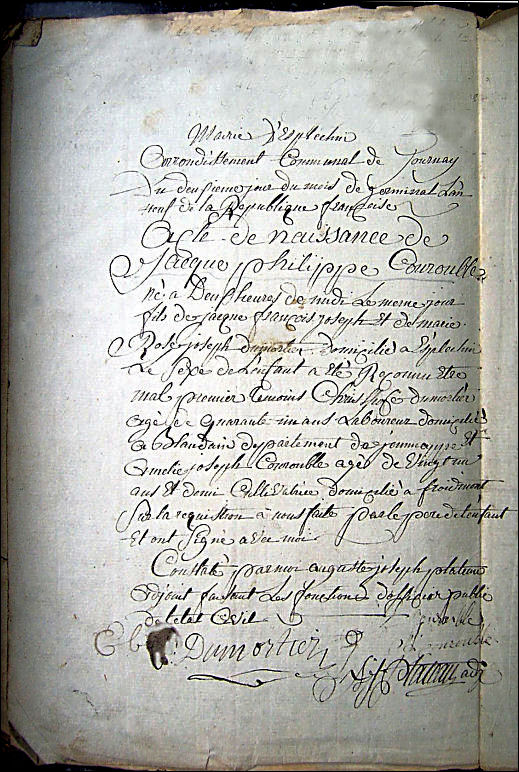 Mairie D'Esplechin
Arrondissement Communal de Tournay
Du deusieme jour du mois de Germinal L'an
neuf de la Republique française
Acte de naissance de
Jacque philippe Courouble
né a Deus heures de midi Le meme jour
fils de jacque françois joseph Et de marie
Rose joseph dumortier domicilié a Esplechin
Le sexe de Lenfant a été Reconnu Etre
mal premier temoins Christophe dumortier
agé de quarante un ans Laboureur domicilié
a Blandain departement de jemmappe Et
Amelie joseph Courouble agée de Vingt un
ans Et demi Cultivatrice domiciliée a froidmont
Sur la requisition a nous faite par le pere de Lenfant
Et ont Signé avec moi
Constaté par moi auguste joseph plateau
adjoint faisant Les fonctions d'officier public
de letat Civil
Dumortier
Courouble
plateau adj